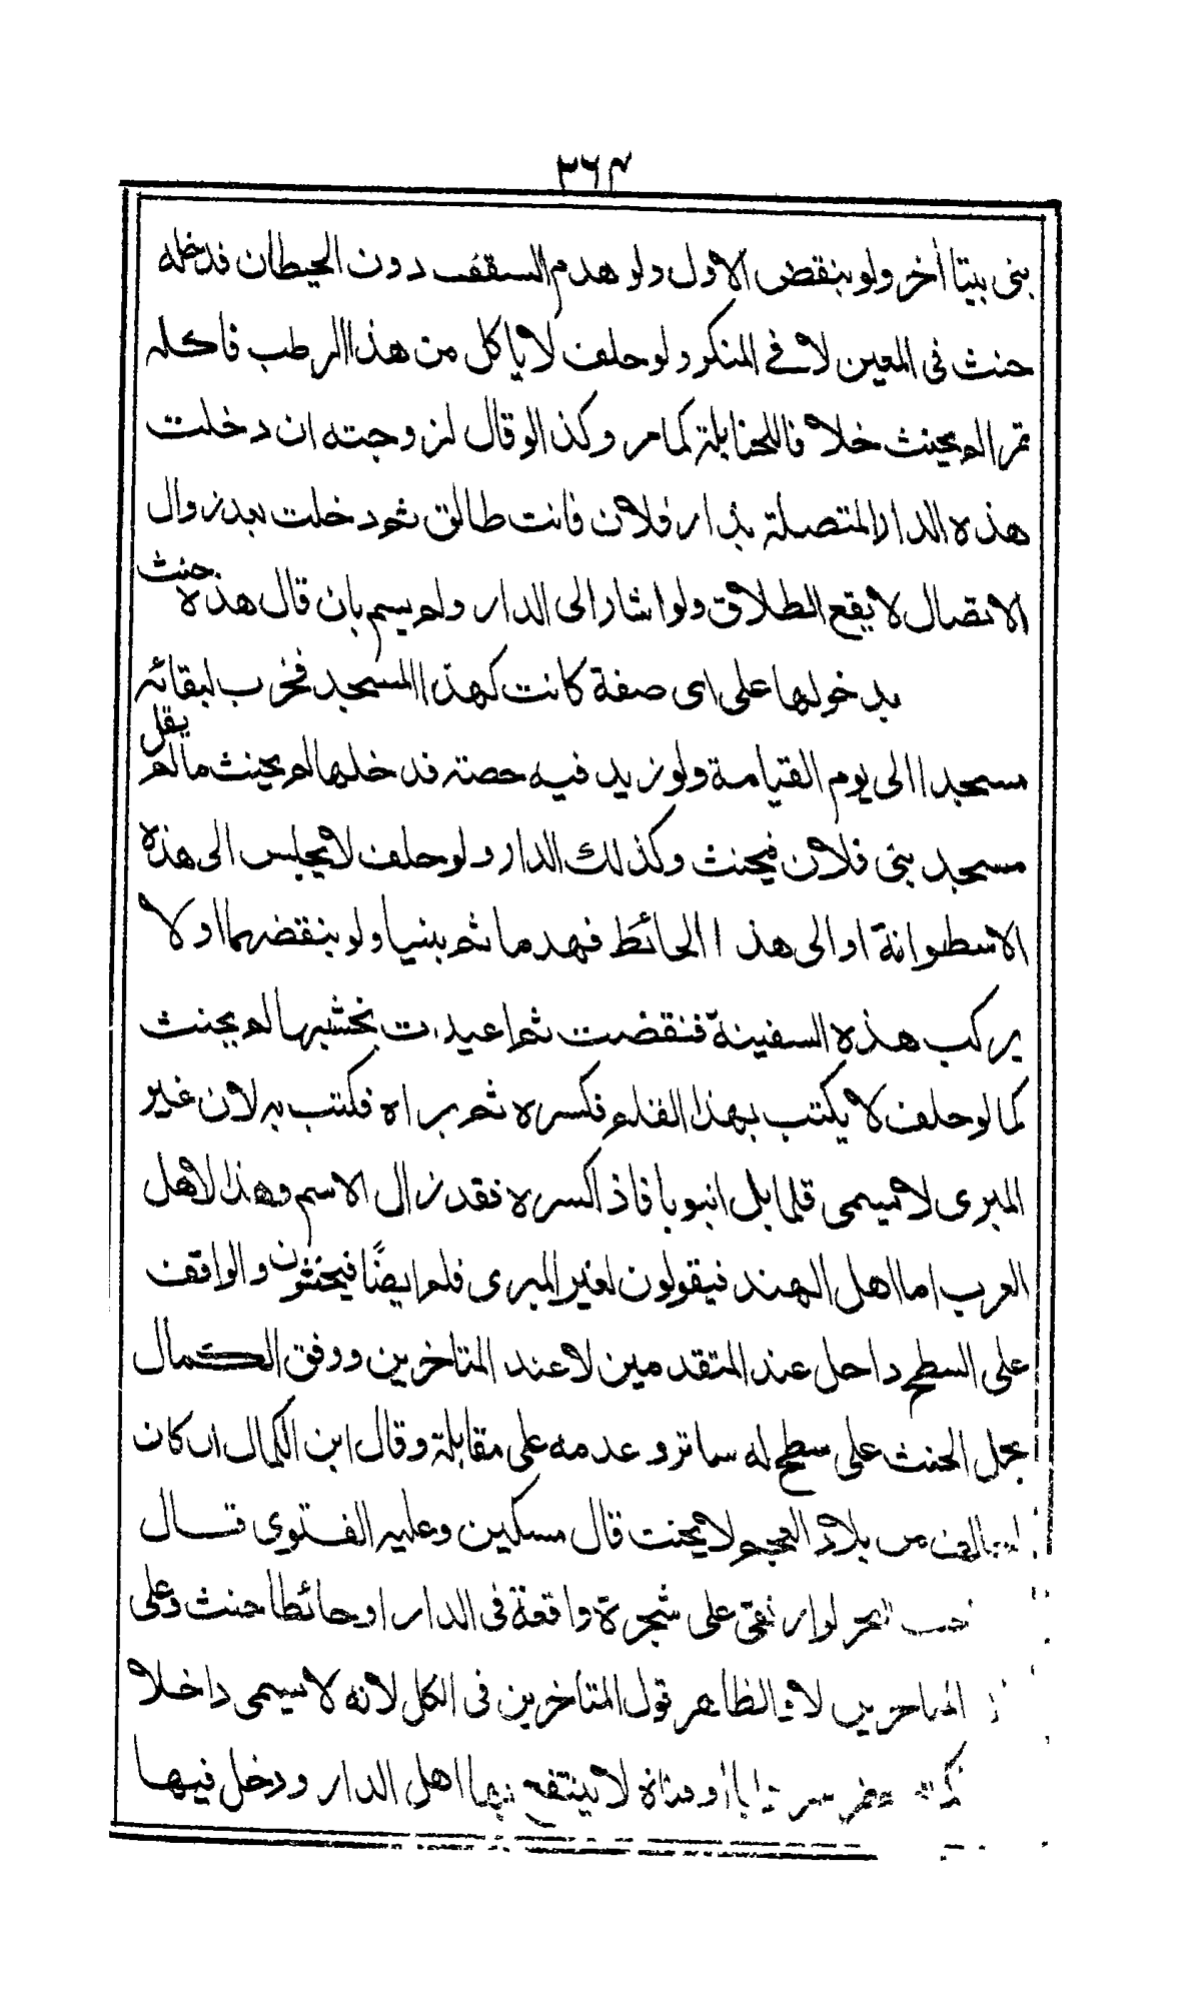 ٣٦٤
بنى بيتا أخر ولو بنقض الاول ولو هدم السقف دون الحيطان فدخله
حنث فى المعين لا فى المنكر ولو حلف لا ياكل من هذا الرطب فاكله
تمرا لم يحنث خلا فاللحنابلة كما مر وكذا لو قال لزوجته ان دخلت
هذه الدار المتصلة بدار فلان فانت طالق ثم دخلت بعد زوال
الاتصال لا يقع الطلاق ولو اشار الى الدار ولم يسم بان قال هذه حنث
بدخولها على اى صفة كانت كهذا المسجد فخرب لبقائه
مسجدا الى يوم القيامة ولو زيد فيه حصته فدخلها لم يحنث ما لم يقل
مسجد بنى فلان فيحنث وكذلك الدار ولو حلف لا يجلس الى هذه
الاسطوانة او الى هذا الحائط فهدما ثم بنيا ولو بنقضهما او لا
يركب هذه السفينة فنقضت ثم اعيدت بخشبها لم يحنث
كما لو حلف لا يكتب بهذا القلم فكسره ثم براه فكتب به لان غير
المبرى لا يسمى قلما بل انبوبا فاذا كسره فقد زال الاسم وهذا لاهل
العرب اما اهل الهند فيقولون لغير المبرى قلم ايضًا فيحنثون والواقف
على السطح داخل عند المتقدمين لا عند المتاخرين ووفق الكمال
بحمل الحنث على سطح له ساتر وعدمه على مقابلة وقال ابن الكمال ان كان
الحالف من بلاد العجم لا يحنث قال مسكين وعليه الفتوى قال
البحر لو ارتقى على شجرة واقعة فى الدار او حائطا حنث وعلى
المتاخرين لا الظاهر قول المتاخرين فى الكل لانه لا يسمى داخلا
سردابا أو قناة لا ينتفع بها اهل الدار ودخل فيها